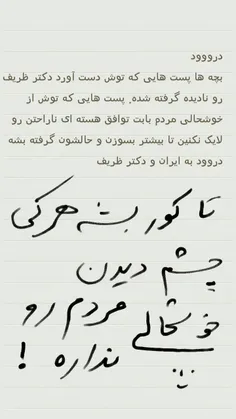 دروووود
بچه ها پست هایی که توش دست آورد دکتر ظریف
رو نادیده گرفته شده, پست هایی که توش از
خوشحالی مردم بابت توافق هسته ای ناراحتن رو
لایک نکنین تا بیشتر بسوزن و حالشون گرفته بشه
دروود به ایران و دکتر ظریف
تا کور بشه هرکی
چشم دیدن
خوشحالی مردم رو
نداره !